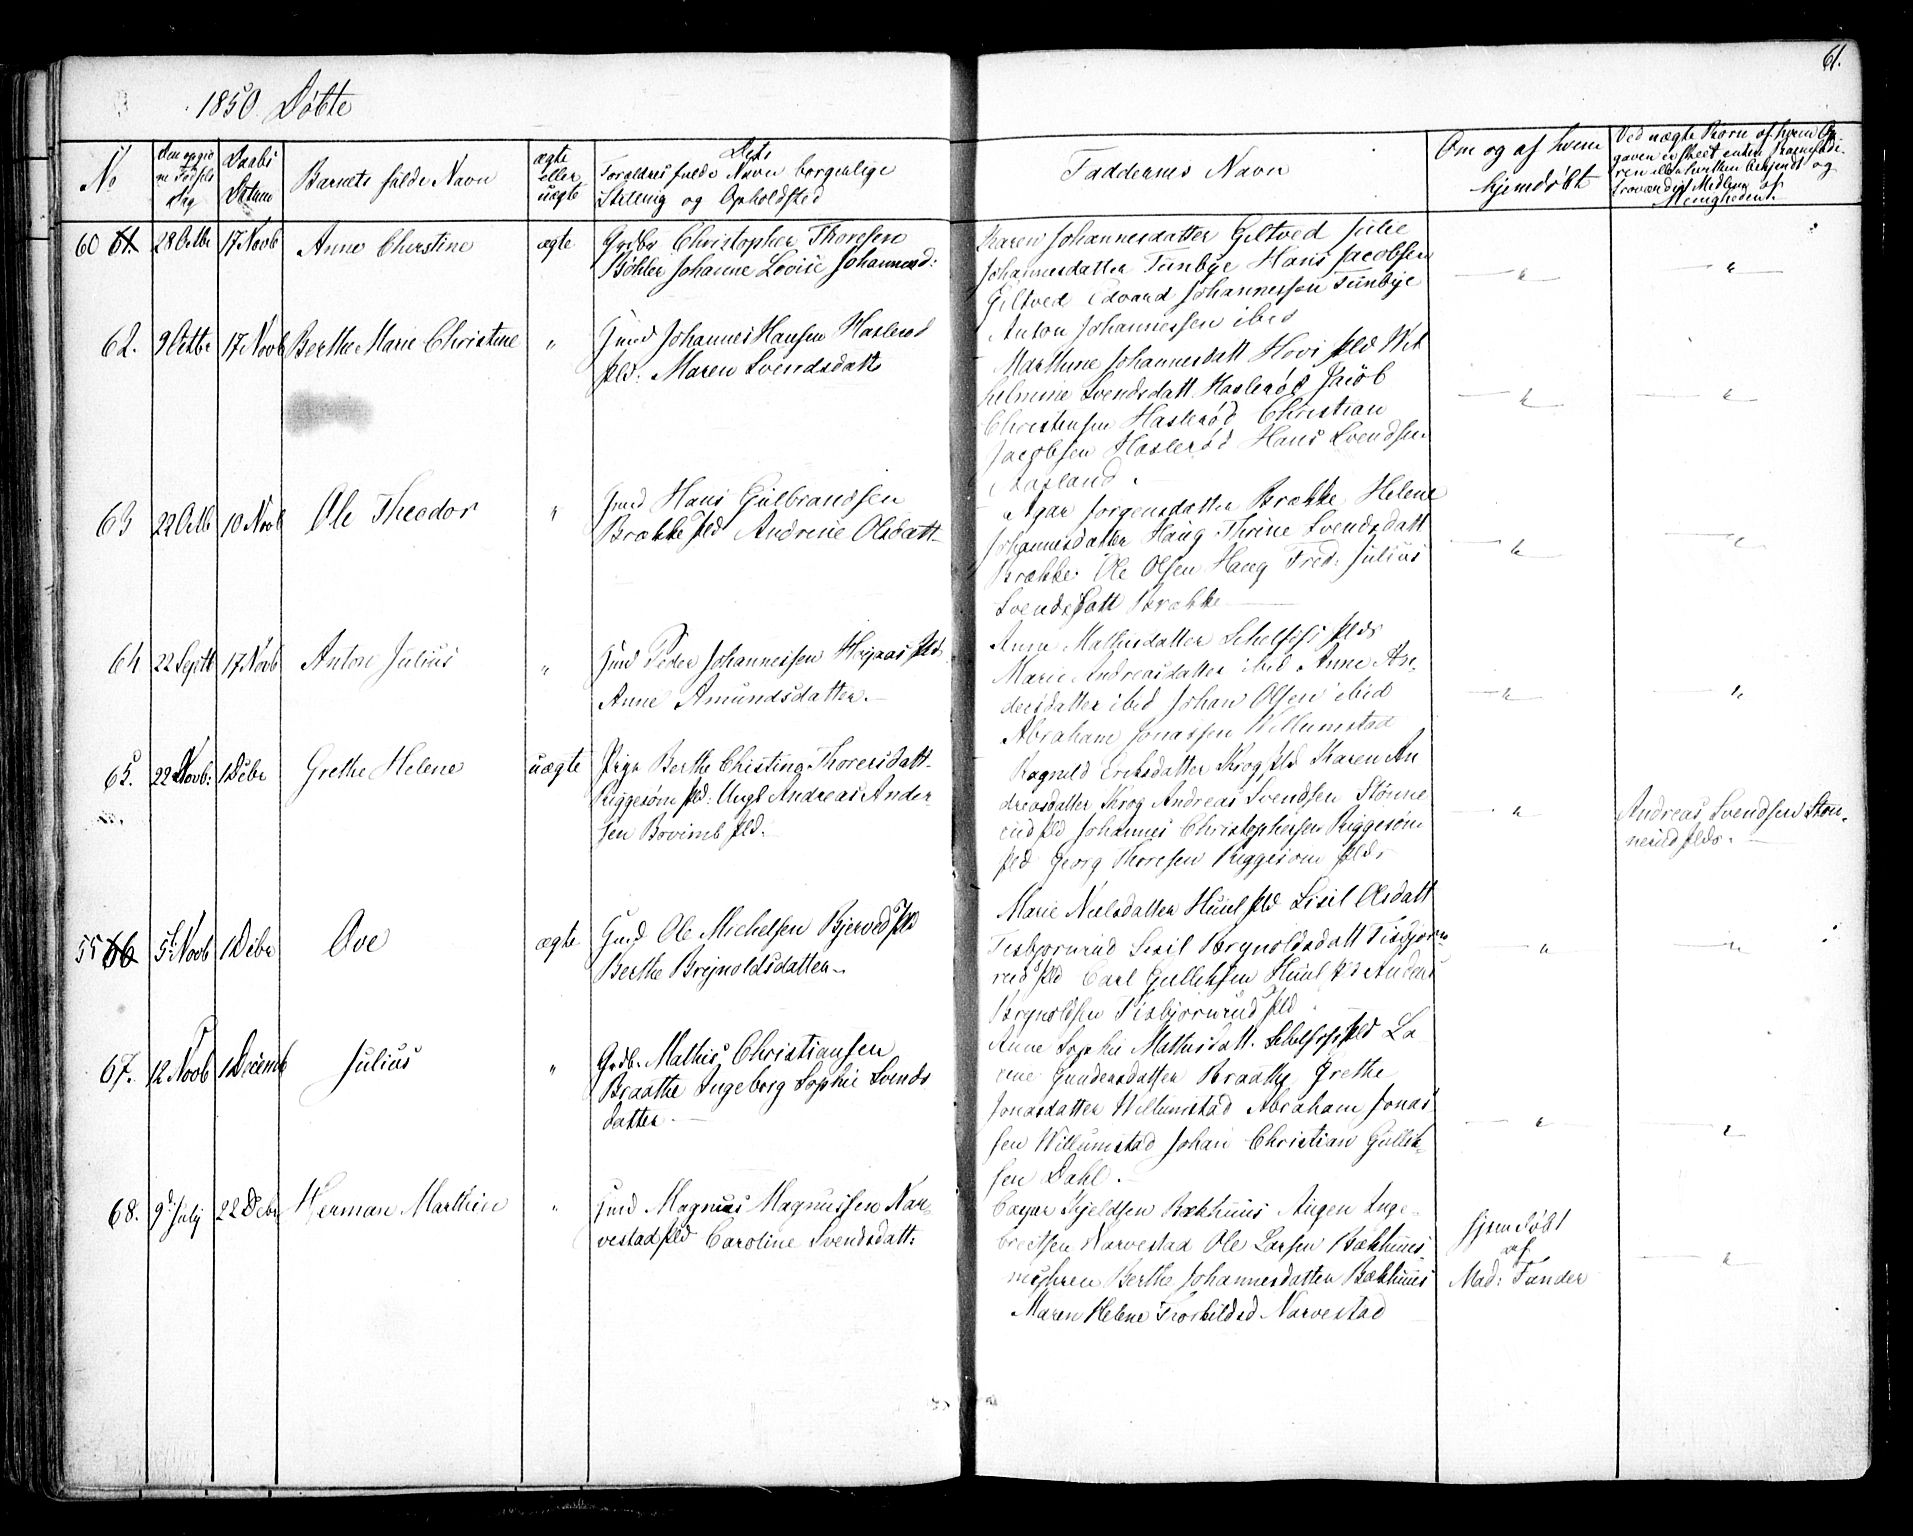 61.
1850. Døbte
No
Den opgivne Fødsels Dag
Daabs Datum
Barnets fulde Navn
ægte eller uægte
Dets Forældres fulde Navn borgerlige
Stilling og Opholdsted
Faddernes Navn
Om og af hvem
hjemdøbt
Ved uægte Børn af hvem Op-
gaven er skeet enten
troværdigt Medlem af
Menigheden.
60 61. 28 Octbr 17 Novb Anne Christine ægte
Grdbr Christopher Thoresen
Bøhler Johanne Lovise Johannesd:
Karen Johannesdatter Giltved Julie
Johannesdatter Tunbye Hans Jacobsen
Giltved Edvard Johannessen Tunbye
Anton Johannessen ibid
62. 9 Octbr 17 Novb Berthe Marie Christine "
Gmd Johannes Hansen Haslerød
Pld: Maren Svendsdatt
Marthine Johannesdatt Hovi Pld Wil
helmine Svendsdatt Haslerød Jacob
Christensen Haslerød Christian
Jacobsen Haslerød Hans Svendsen
Aasland.
63 22 Octb 10 Novb Ole Theodor "
Gmd Hans Gulbrandsen
Brække Pld Andrine Olsdatt
Agar Jørgensdatter Brække Helene
Johannesdatter Haug Thrine Svendsdatt
Brække Ole Olsen Haug Fred: Julius
Svendsdatt Brække
64 22 Septb 17 Novb Anton Julius "
Gmd Peder Johannessen Pld
Anne Amundsdatter.
Anne Mathisdatter Pldr
Marie Andreasdatter ibid Anne An-
dersdatter ibid Johan Olsen ibid
Abraham Jonassen Willumstad
65. 22 Novb: 1 Debr Grethe Helene uægte
Pige Berthe Christine Thoresdatt
Riggesøm Pld: Ungk Andreas Ander-
sen Pld.
Ragnild Ericksdatter Krog Pld Karen An
dreasdatter Krog Andreas Svendsen Stønne
rud Pld Johannes Christophersen Riggesøm
Pld Georg Thoresen Riggesøm Pldr
Andreas Svendsen Støn-
nerud Pldr.
55 66 5 Novb 1 Debr Ove ægte
Gmd Ole Michelsen Bjerved Pld
Berthe Brynoldsdatter
Marie Nielsdatter Huul Pld Sisil Olsdatt
Tisbjørnrud Sisil Brynoldsdatt Tisbjørn
rud Pld Carl Gulliksen Huul Anders
Brynoldsen Tisbjørnrud Pld
67. 12 Novb 1 Decemb Julius "
Grdb. Mathis Christiansen
Braathe Ingeborg Sophie Svends
datter.
Anne Sophie Mathisdatt. Pld La
rine Gundersdatter Braathe Grethe
Jonasdatter Willumstad Abraham Jonas
sen Willumstad Johan Christian Gullik-
sen Dahl.
68. 9 July 22 Debr Herman Marthin "
Gmd Magnus Magnussen Nar-
vestad Pld Caroline Svendsdatt:
Kjeldsen Bækhuus Augen Inge-
breitsen Narvestad Ole Larsen Bækhuus
Berthe Johannesdatter Bækhuus
Maren Helene Torkildsd Narvestad
hjemdøbt
af
Mad: Tunder